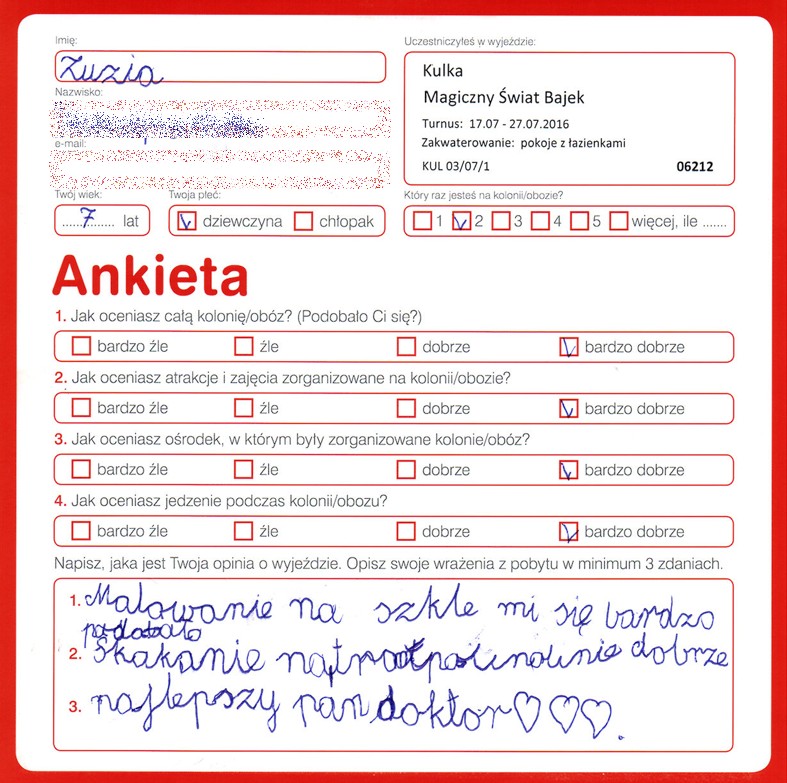 Imię:
Zuzia
Nazwisko:
e-mail:
Twój wiek:
7 lat
Twoja płeć:
dziewczyna chłopak
Uczestniczyłeś w wyjeździe:
Kulka
Magiczny Świat Bajek
Turnus: 17.07 - 27.07.2016
Zakwaterowanie: pokoje z łazienkami
KUL 03/07/1 06212
Który raz jesteś na kolonii/obozie?
1 2 3 4 5 więcej, ile .......
Ankieta
1. Jak oceniasz całą kolonię/obóz? (Podobało Ci się?)
bardzo źle źle dobrze bardzo dobrze
2. Jak oceniasz atrakcje i zajęcia zorganizowane na kolonii/obozie?
bardzo źle źle dobrze bardzo dobrze
3. Jak oceniasz ośrodek, w którym były zorganizowane kolonie/obóz?
bardzo źle źle dobrze bardzo dobrze
4. Jak oceniasz jedzenie podczas kolonii/obozu?
bardzo źle źle dobrze bardzo dobrze
Napisz, jaka jest Twoja opinia o wyjeździe. Opisz swoje wrażenia z pobytu w minimum 3 zdaniach.
1. Malowanie na szkle mi się bardzo
podobało
2. Skakanie dobrze
3. najlepszy pan doktor♡♡♡.